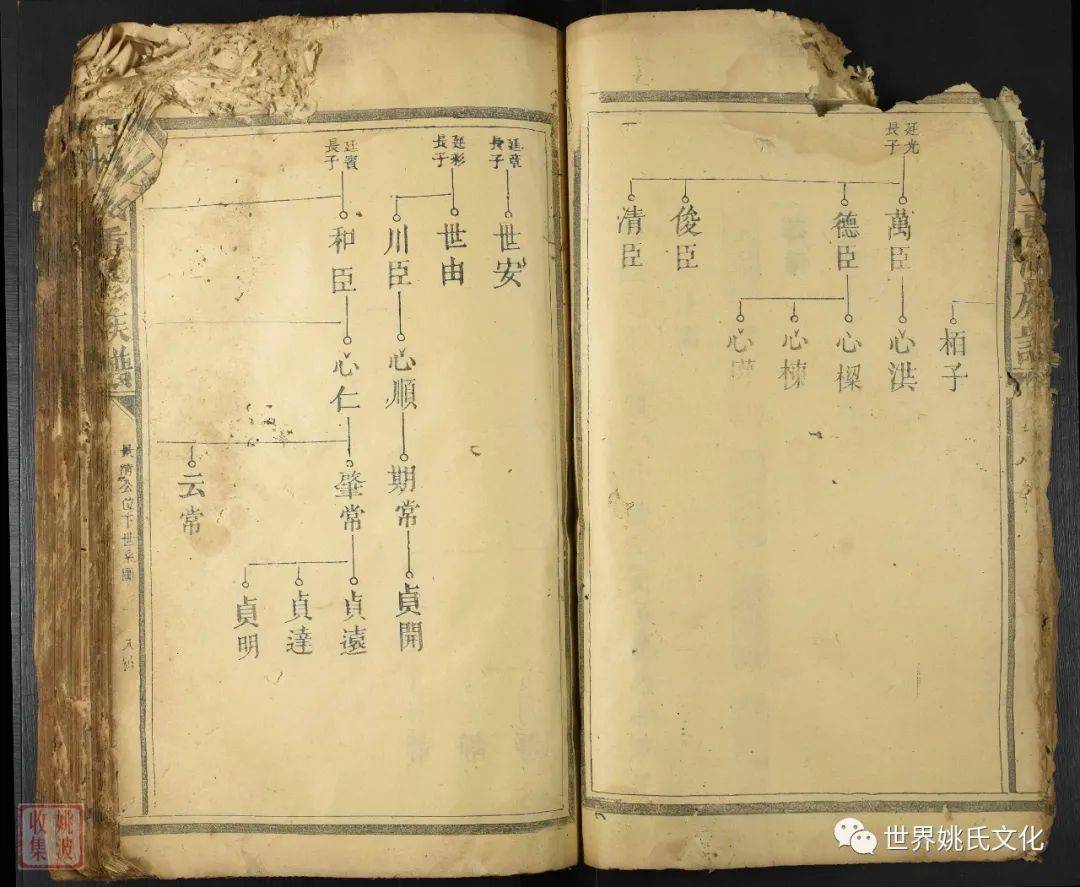 栢子
廷光
長子
萬臣
心洪
德臣
心樑
心棟
心
俊臣
清臣
廷章
長子
世安
廷彩
長子
世由
川臣
心順
期常
貞開
廷賓
長子
和臣
心仁
肇常
貞遠
貞達
貞明
云常
族譜
公位下世系圖
姚波
收集
世界姚氏文化